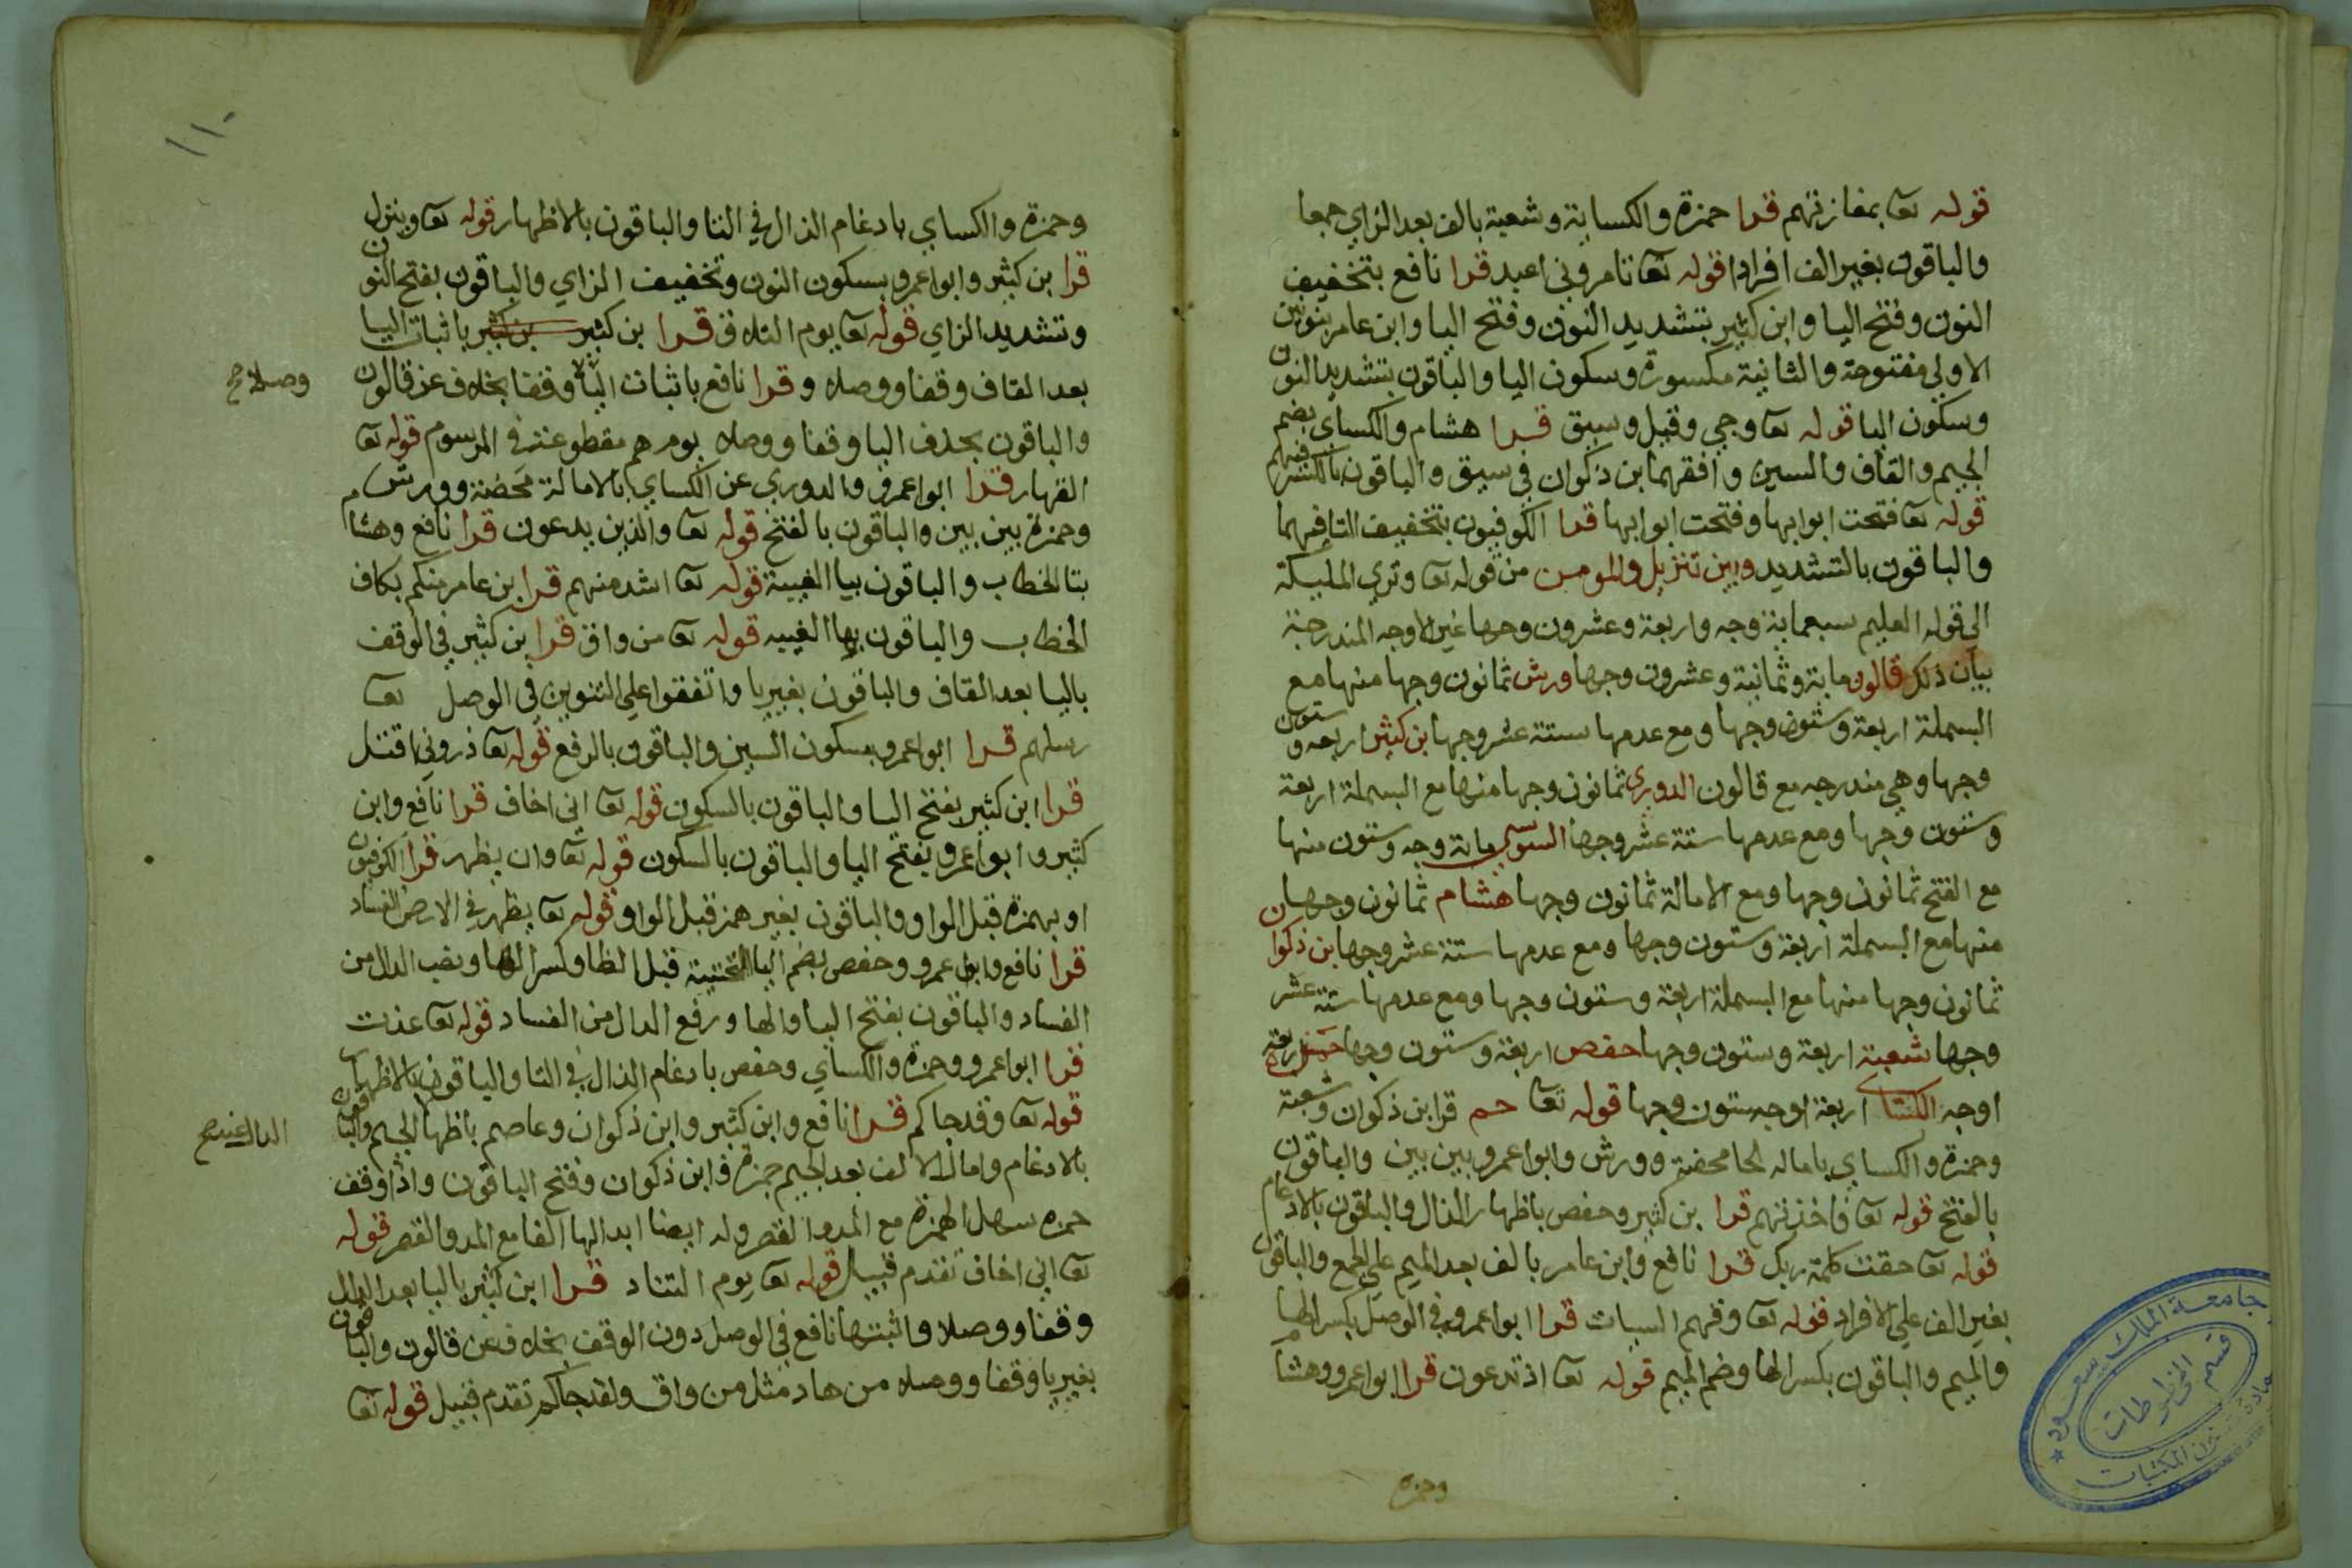 قوله تعا بمفازتهم قرا حمزة والكساية وشعبة بالف بعد الزاي جمعا
والباقون بغير الف افرادا قوله تعا تامروني اعبد قرا نافع بتخفيف
النون وفتح اليا وابن كثير بتشديد النون وفتح اليا وابن عامر بنونين
الاولي مفتوحة والثانية مكسورة وسكون اليا والباقون بتشديد النون
وسكون اليا قوله تعا وجي وقيل وسيق قرا هشام والكساي بضم
الجيم والقاف والسين وافقهما بن ذكوان في سيق والباقون بالكسر فيهم
قوله تعا فتحت ابوابها وفتحت ابوابها قرا الكوفيون بتخفيف التا فيهما
والباقون بالتشديد وبين تنزيل والمومن من قوله تعا وتري المليكة
الي قوله العليم سبعماية وجه واربعة وعشرون وجها غير الاوجه المندرجة
بيان ذلك قالون ماية وثمانية وعشرون وجها ورش ثمانون وجها منها مع
البسملة اربعة وستون وجها ومع عدمها ستة عشر وجها بن كثير اربعة وستون
وجها وهي مندرجه مع قالون الدوري ثمانون وجها منها مع البسملة اربعة
وستون وجها ومع عدمها ستة عشر وجها السوسي ماية وجه وستون منها
مع الفتح ثمانون وجها ومع الامالة ثمانون وجها هشام ثمانون وجها
منها مع البسملة اربعة وستون وجها ومع عدمها ستة عشر وجها بن ذكوان
ثمانون وجها منها مع البسملة اربعة وستون وجها ومع عدمها ستة عشر
وجها شعبة اربعة وستون وجها حفص اربعة وستون وجها حمزة اربعة
اوجه الكساي اربعة اوجه ستون وجها قوله تعا حم قرا بن ذكوان وشعبة
وحمزة والكساي باماله الحا محضة وورش وابو اعمرو بين بين والباقون
بالفتح قوله تعا فاخذتهم قرا بن كثير وحفص باظهار الذال والباقون بالادغام
قوله تعا حقت كلمة ربك قرا نافع وابن عامر بالف بعد الميم علي الجمع والباقون
بغير الف علي الافراد قوله تعا وقهم السيات قرا ابو اعمرو في الوصل بكسر الها
والميم والباقون بكسر الها وضم الميم قوله تعا اذ تدعون قرا ابو اعمرو وهشام
وحمزة
جامعة الملك سعود
قسم المخطوطات
عمادة شؤون المكتبات
١١٠
وحمزة والكساي بادغام الذال في التا والباقون بالاظهار قوله تعا وينزل
قرا بن كثير وابو اعمرو بسكون النون وتخفيف الزاي والباقون بفتح النون
وتشديد الزاي قوله تعا يوم التلاق قرا بن كثير بن كثير باثبات اليا
بعد القاف وقفا ووصلا وقرا نافع باثبات اليا وقفا بخلاف عن قالون
وصلا صح
والباقون بحذف اليا وقفا ووصلا يوم هم مقطوعة في المرسوم قوله تعا
القهار قرا ابو اعمرو والدوري عن الكساي بالامالة محضة وورش
وحمزة بين بين والباقون بالفتح قوله تعا والذين يدعون قرا نافع وهشام
بتا الخطاب والباقون بيا الغيبة قوله تعا اشد منهم قرا بن عامر منكم بكاف
الخطاب والباقون بها الغيبه قوله تعا من واق قرا بن كثير في الوقف
باليا بعد القاف والباقون بغير يا واتفقوا علي التنوين في الوصل تعا
رسلهم قرا ابو اعمرو بسكون السين والباقون بالرفع قوله تعا ذروني اقتل
قرا ابن كثير بفتح اليا والباقون بالسكون قوله تعا اني اخاف قرا نافع وابن
كثير وابو اعمرو بفتح اليا والباقون بالسكون قوله تعا وان يظهر قرا الكوفيون
او بهمزة قبل الواو والباقون بغير همز قبل الواو قوله تعا يظهر في الارض الفساد
قرا نافع وابو عمرو وحفص بضم اليا التحتية قبل الظا وكسر الها ونصب الدال من
الفساد والباقون بفتح اليا والها ورفع الدال من الفساد قوله تعا عذت
قرا ابو اعمرو وحمزة والكساي وحفص بادغام الذال في التا والباقون بالاظهار
قوله تعا وقد جاكم قرا نافع وابن كثير وابن ذكوان وعاصم باظهار الجيم والباقون
الدال عند صح
بالادغام وامال الالف بعد الجيم حمزة وابن ذكوان وفتح الباقون واذا وقف
حمزه سهل الهمزة مع المد والقصر وله ايضا ابدالها الفا مع المد والقصر قوله
تعا اني اخاف تقدم قبيل قوله تعا يوم التناد قرا ابن كثير باليا بعد الدال
وقفا ووصلا واثبتها نافع في الوصل دون الوقف بخلاف عن قالون والباقون
بغير يا وقفا ووصلا من هاد مثل من واق ولقد جاكم تقدم قبيل قوله تعا